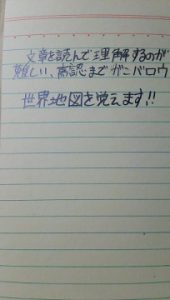 文章を読んで理解するのが
難しい、高認までガンバロウ
世界地図を覚えます!!